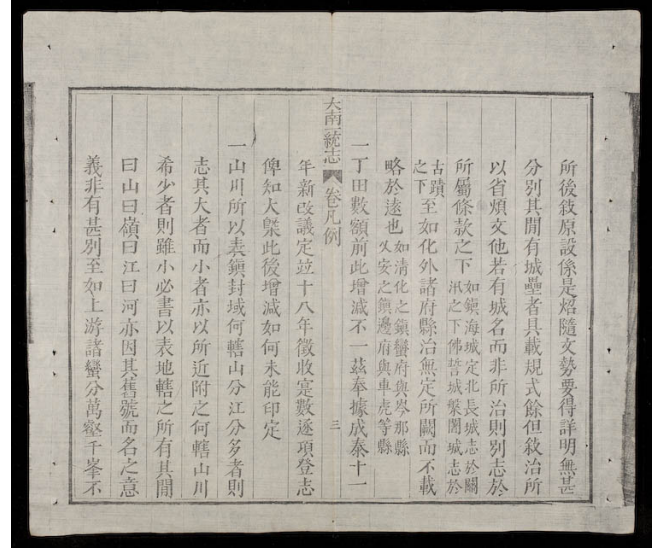 所後敘原設係是炤隨文勢要得詳明無甚
分別其閒有城壘者具載規式餘但敘治所
以省煩文他若有城名而非所治則別志於
所屬條款之下如鎮海城定北長城志於關
汛之下佛誓城槃闍城志於
古蹟
之下至如化外諸府縣治無定所闕而不載
略於遠也如清化之鎮蠻府與岑那縣
乂安之鎮邊府與車虎等縣
一丁田數額前此增減不一茲奉據成泰十一
大南一統志 卷凡例 三
年新改議定竝十八年徵收寔數逐項登志
俾知大槩此後增減如何未能印定
一山川所以表鎮封域何轄山分江分多者則
志其大者而小者亦以所近附之何轄山川
希少者則雖小必書以表地轄之所有其閒
曰山曰嶺曰江曰河亦因其舊號而名之意
義非有甚別至如上游諸蠻分萬壑千峯不